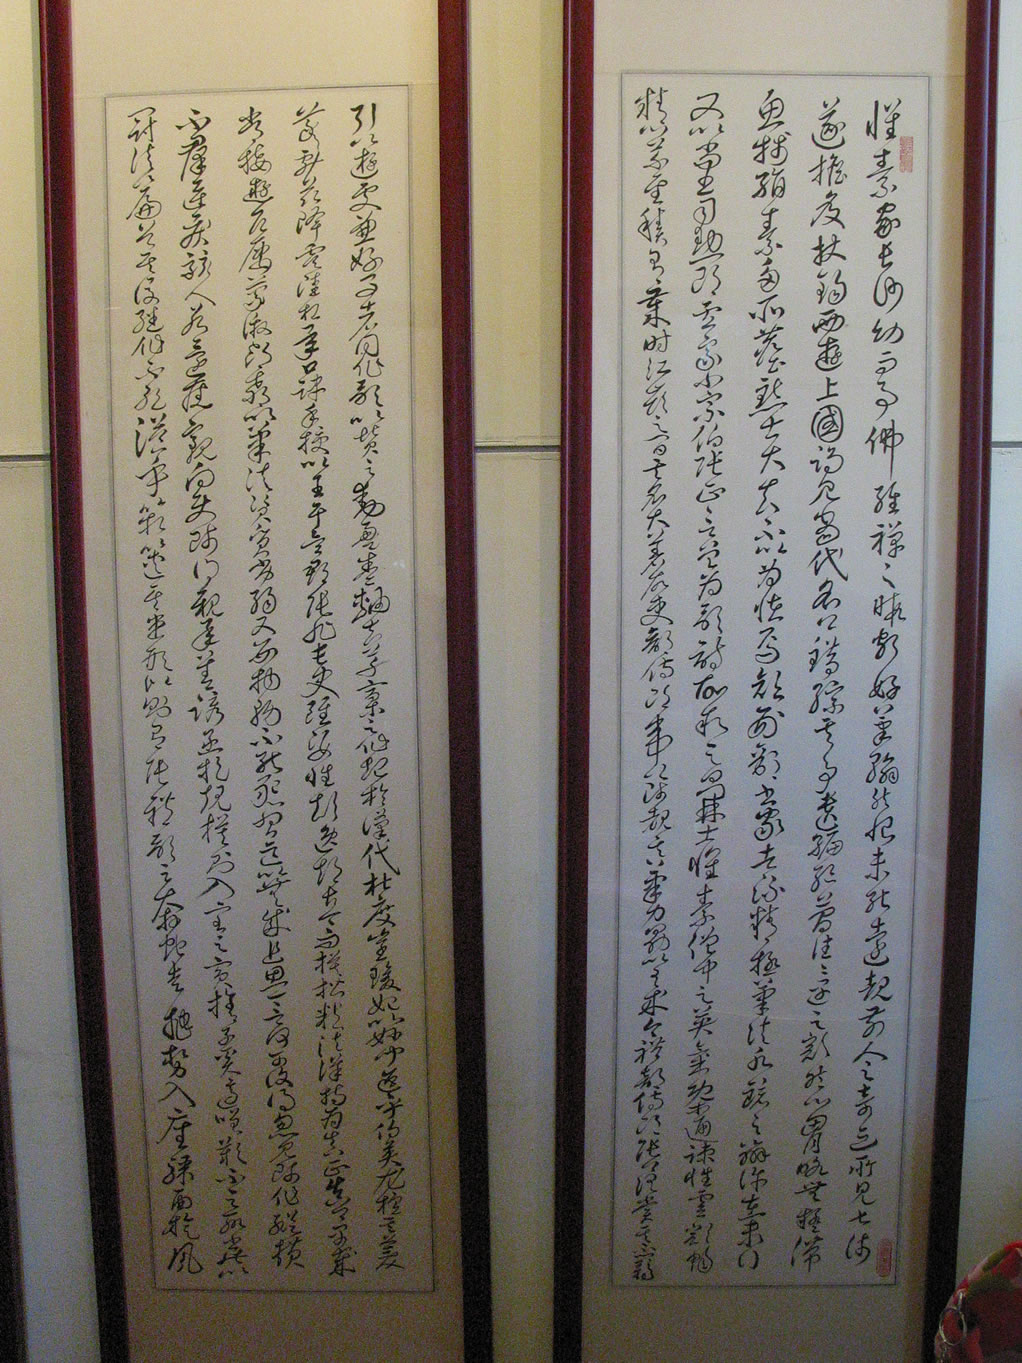 懷素家長沙幼而事佛經禪之暇頗好筆翰然恨未能遠覩前人之奇迹所見甚淺
遂擔笈杖錫西遊上國謁見當代名公錯綜其事遺編絕簡往往遇之豁然心胸略無疑滯
魚牋絹素多所塵點士大夫不以為怪焉顏刑部書家者流精極筆法水鏡之辨許在末行
又以尚書司勳郎盧象小宗伯張正言曾為歌詩故敘之曰開士懷素僧中之英氣概通疎性靈豁暢
精心草聖積有歲時江嶺之間其名大著故吏部侍郎韋公陟覩其筆力勗以有成今禮部侍郎張公謂賞其不羈
引以遊處兼好事者同作歌以贊之動盈卷軸夫草稾之作起於漢代杜度崔瑗始以妙聞迨乎伯英尤擅其美
羲獻茲降虞陸相承口訣手授以至于吳郡張旭長史雖姿性顛逸超絕古今而模楷精法詳特為真正真卿早歲
常接遊居屢蒙激昂教以筆法資質劣弱又嬰物務不能懇習迄以無成追思一言何可復得忽見師作縱橫
不羣迅疾駭人若還舊觀向使師得親承善誘函挹規模則入室之賓捨子奚適嗟歎不足聊書此以
冠諸篇首其後繼作不絕溢乎箱篋其述形似則有張禮部云奔蛇走虺勢入座驟雨旋風